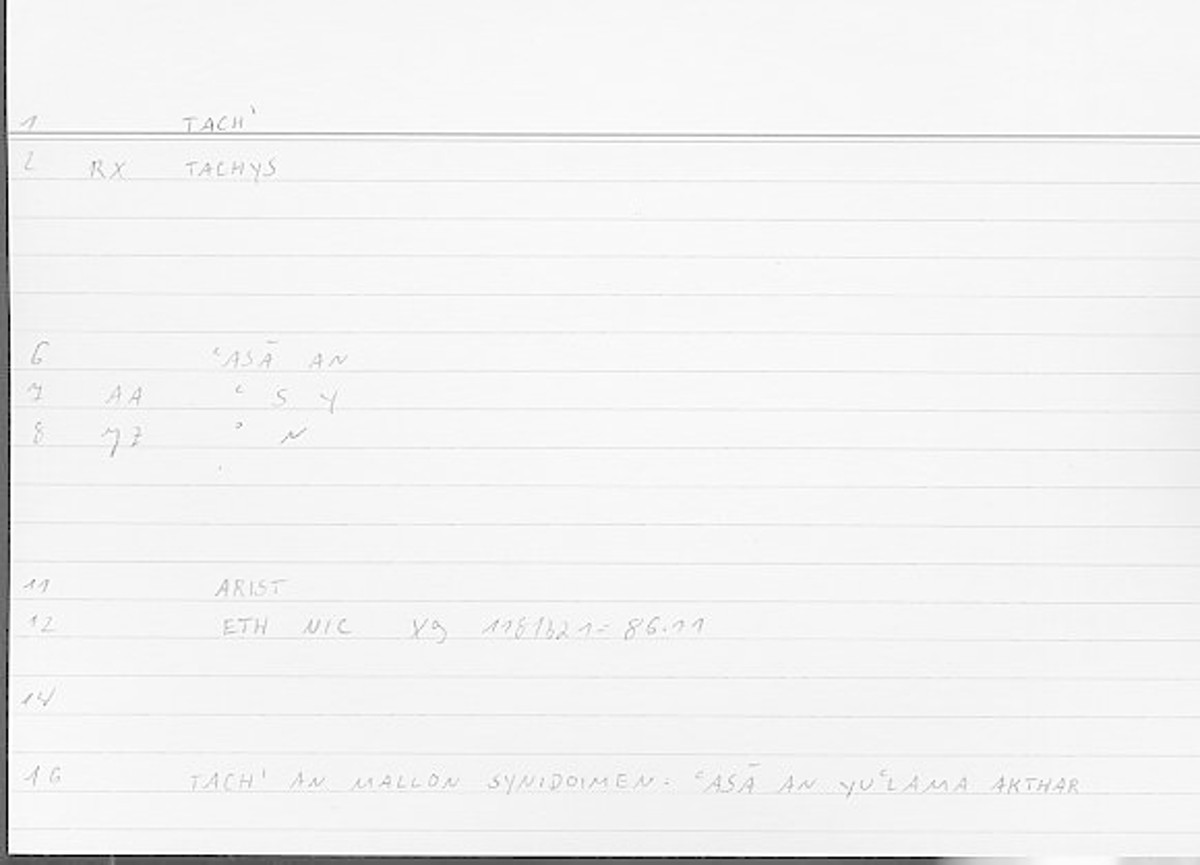 1 TACH'
2 RX TACHYS
6 ʿASĀ AN
7 AA ʿ S Y
8 ʾ N
11 ARIST
12 ETH NIC 86.11
14
16 TACH' AN MALLON SYNIDOIMEN = ʿASĀ AN YUʿLAMA AKTHAR